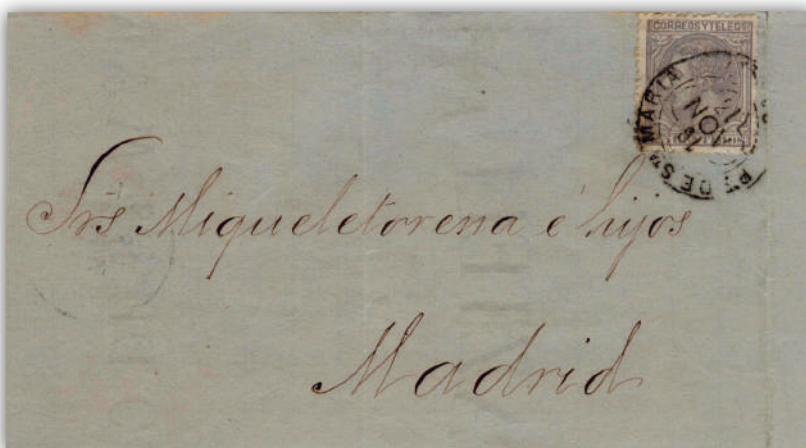 CORREOS Y TELEGS
PT. DE STA MARIA
NOV
81
Srs Migueletorena é hijos
Madrid